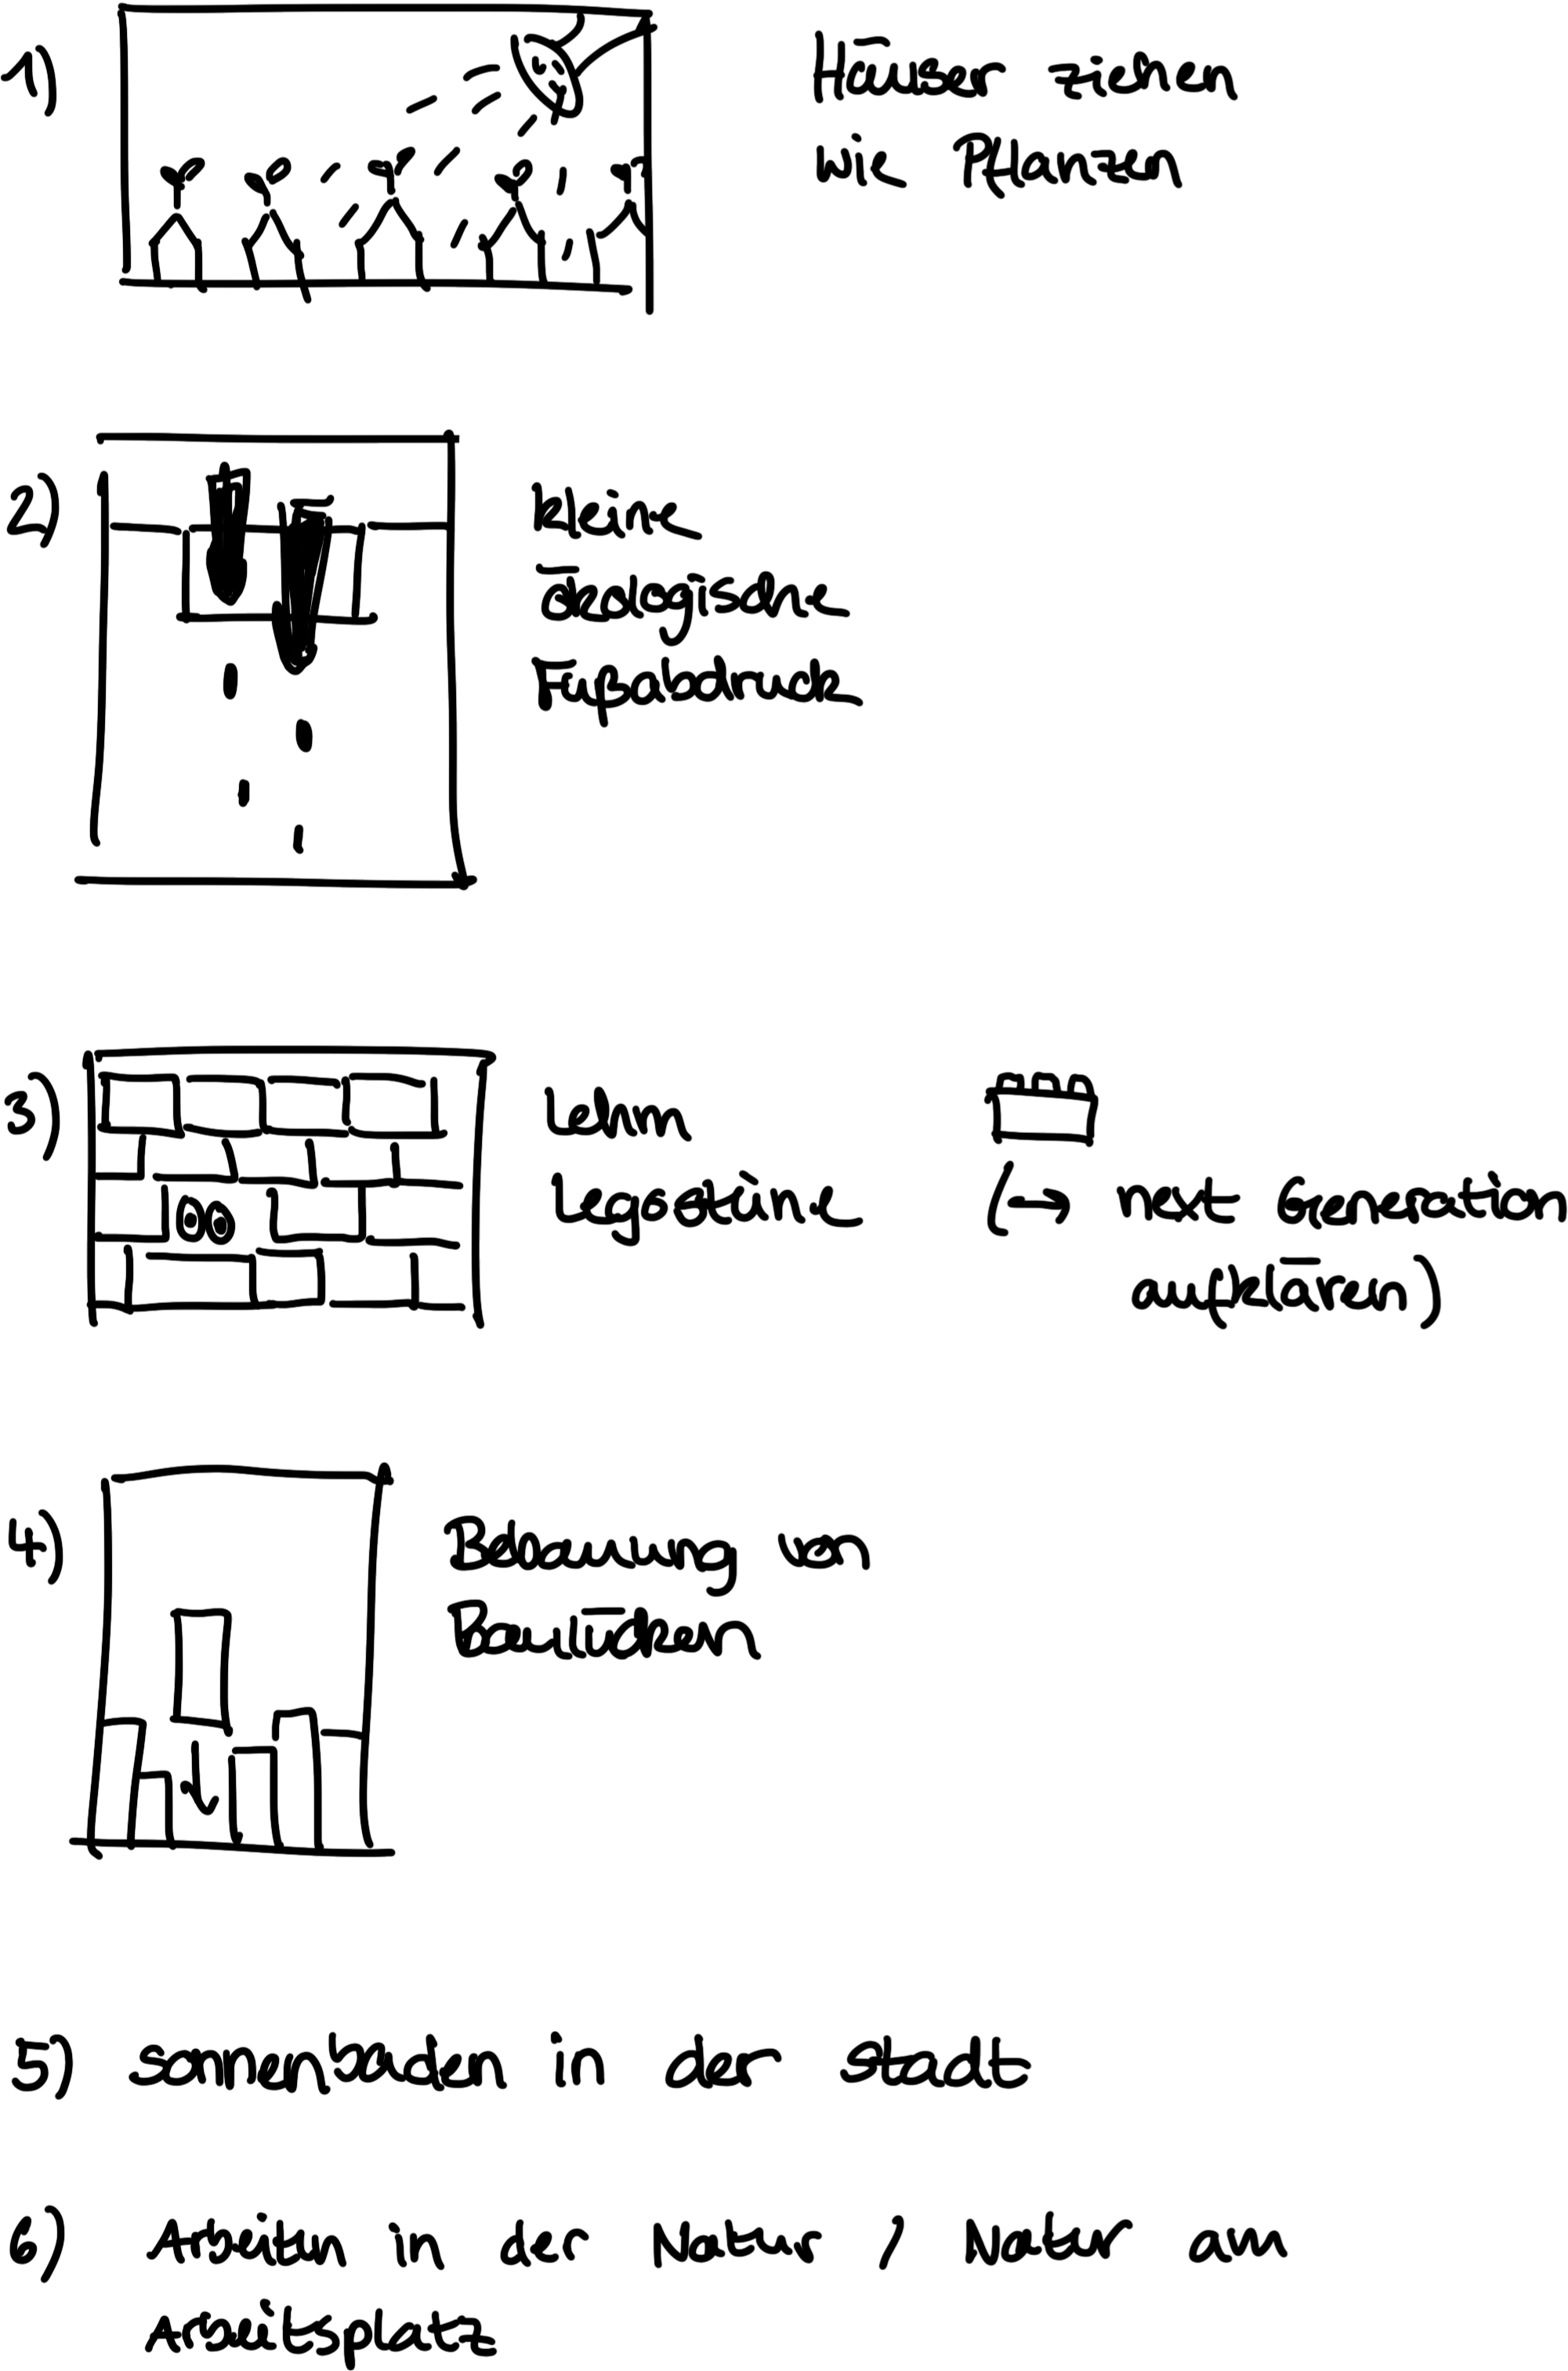 1)
Häuser ziehen
wie Pflanzen
2)
kleine
ökologische
Fußabdrücke
3)
Lehm
Legosteine
(→ next Generation
aufklären)
4)
Bebauung von
Baulücken
5) sonnenbaden in der stadt
6) Arbeiten in der Natur / Natur am
Arbeitsplatz